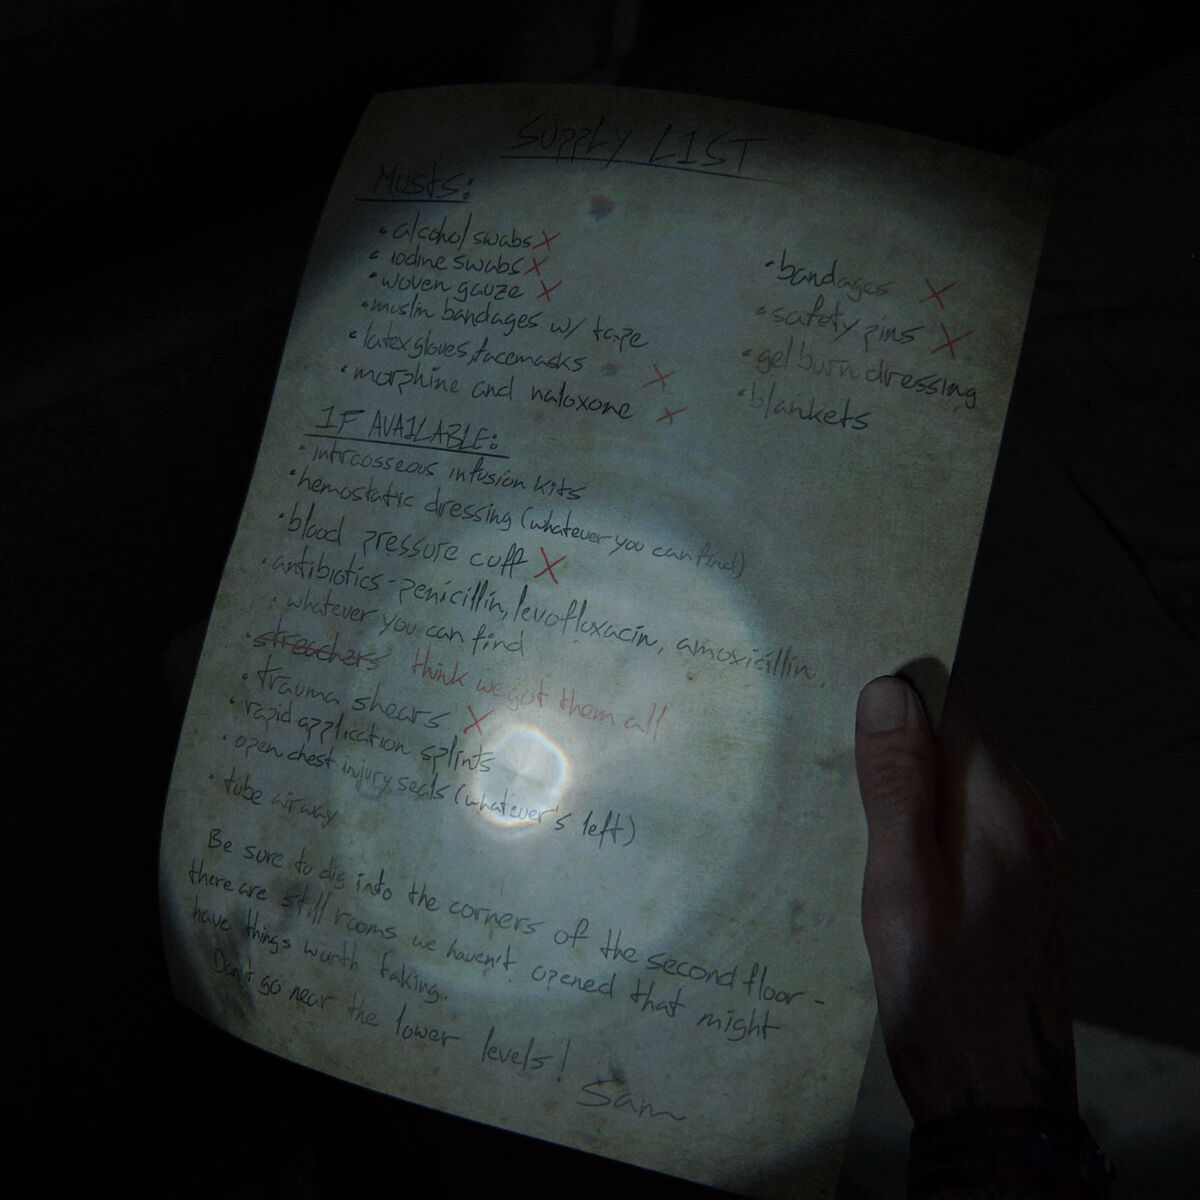 SUPPLY LIST
Musts:
• alcohol swabs X
• iodine swabs X
• woven gauze X
• muslin bandages w/ tape
• latex gloves, facemasks X
• morphine and naloxone X
• bandages X
• safety pins X
• gel burn dressing
• blankets
IF AVAILABLE:
• intraosseous infusion kits
• hemostatic dressing (whatever you can find)
• blood pressure cuff X
• antibiotics - penicillin, levofloxacin, amoxicillin,
• whatever you can find
• streachers think we got them all
• trauma shears X
• rapid application splints
• open chest injury seals (whatever's left)
• tube airway
Be sure to dig into the corners of the second floor -
there are still rooms we haven't opened that might
have things worth taking.
Don't go near the lower levels!
Sam